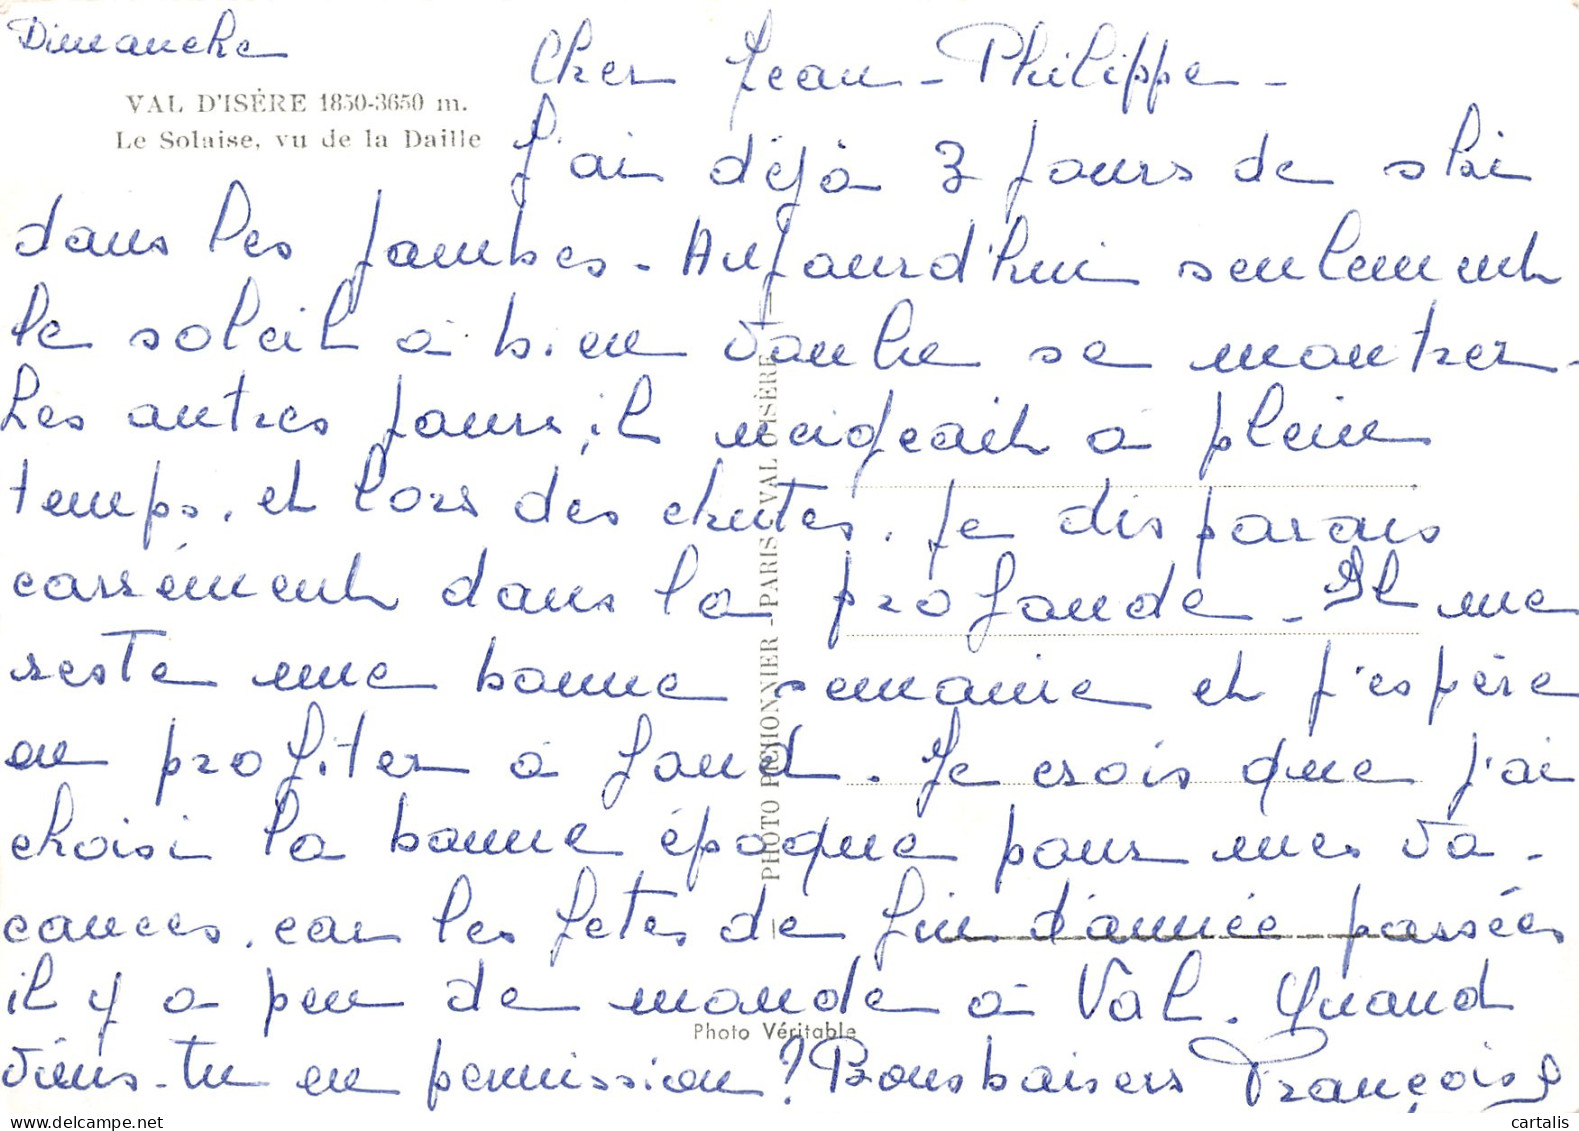 Dimanche
Cher Jean-Philippe-
VAL D'ISÈRE 1850-3650 m.
Le Solaise, vu de la Daille
J'ai déjà 3 jours de ski
dans les jambes - Aujourd'hui seulement
le soleil à bien voulu se montrer -
Les autres jours, il neigeait à plein
temps, et lors des chutes, je disparais
carrément dans la profonde - Il me
reste une bonne semaine et j'espère
en profiter à fond. Je crois que j'ai
choisi la bonne époque pour mes va-
cances, car les fêtes de fin d'année passées
il y a peu de monde à Val. Quand
viens-tu en permission? Bons baisers Françoise
PHOTO PICHONNIER - PARIS - VAL D'ISÈRE
Photo Véritable
cartalis